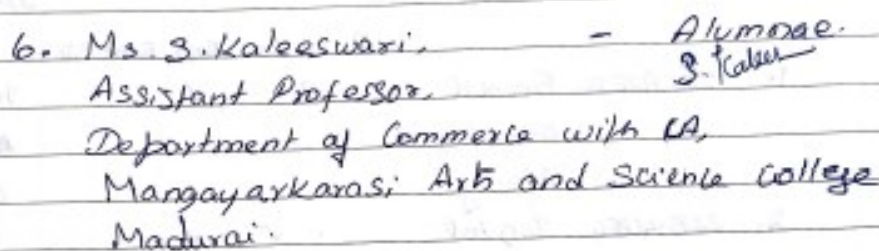 6. Ms. S. Kaleeswari, - Alumnae.
S. Kalees
Assistant Professor.
Department of Commerce with CA,
Mangayarkarasi Arts and Science College
Madurai.